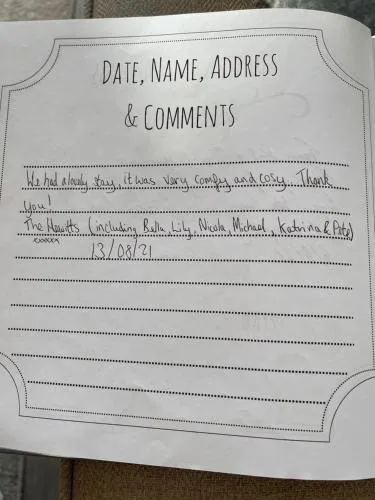 DATE, NAME, ADDRESS
& COMMENTS
We had a lovely stay, it was very comfy and cosy. Thank
you!
The Hewitts (including Bella, Lily, Nicola, Michael, Katrina & Pete)
xxxxxx
13/08/21